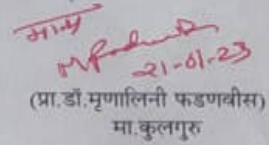 मान्य
21-01-23
(प्रा.डॉ.मृणालिनी फडणवीस)
मा.कुलगुरु